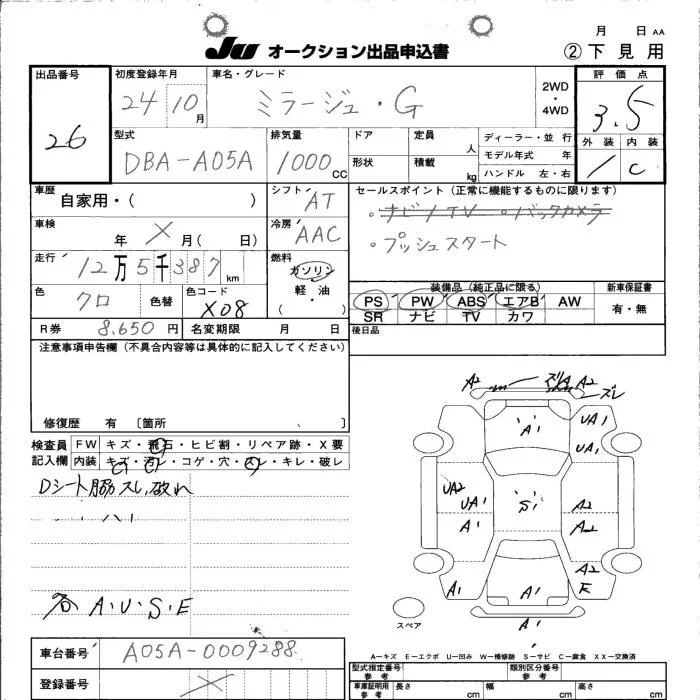 月 日 AA
JU オークション出品申込書
② 下見用
出品番号
26
初度登録年月
24 10月
車名・グレード
ミラージュ・G
2WD・4WD
評価点
3.5
型式
DBA-A05A
排気量
1000 CC
ドア
形状
定員 人
積載 kg
ディーラー・並行
モデル年式 年
ハンドル 左・右
外装 内装
C
車歴
自家用・( )
シフト
AT
セールスポイント(正常に機能するものに限ります)
・ナビ/TV ・バックカメラ
・プッシュスタート
車検
年 X 月( 日)
冷房
AAC
走行
12万5千387km
燃料
ガソリン
軽・油
・
( )
色
クロ
色替
色コード
X08
装備品(純正品に限る)
PS PW ABS エアB AW
SR ナビ TV カワ
新車保証書
有・無
R券 8,650円 名変期限 月 日
後日品
注意事項申告欄(不具合内容等は具体的に記入してください)
修復歴 有 〔箇所 〕
検査員記入欄
FW キズ・飛石・ヒビ割・リペア跡・X要
内装 キズ・汚レ・コゲ・穴・スレ・キレ・破レ
Dシート脇スレ,破れ
各 A・U・S・E
A2 ズレ A2
ズレ
A1 UA1
UA1
UA2
UA1 S1 A2
A1 A2
A2
A1 A1 E
A1
スペア
A-キズ E-エクボ U-凹み W-補修跡 S-サビ C-腐食 XX-交換済
車台番号 A05A-0009288
登録番号 X
型式指定番号 参考
類別区分番号 参考
車庫証明用 参考
長さ cm 幅 cm 高さ cm